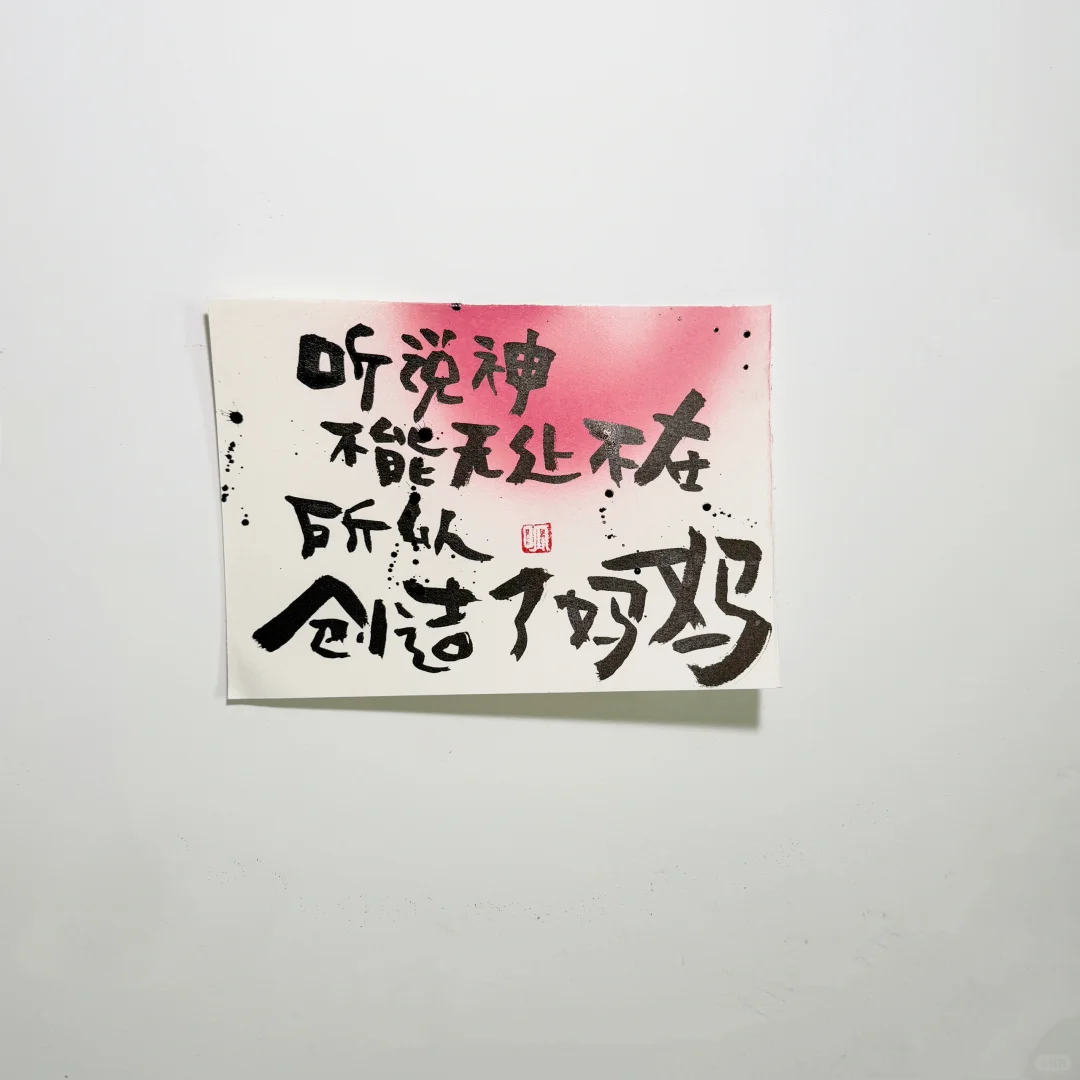 听说神
不能无处不在
所以
创造了妈妈